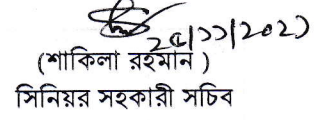 ২৫/১১/২০২১
(শাকিলা রহমান )
সিনিয়র সহকারী সচিব